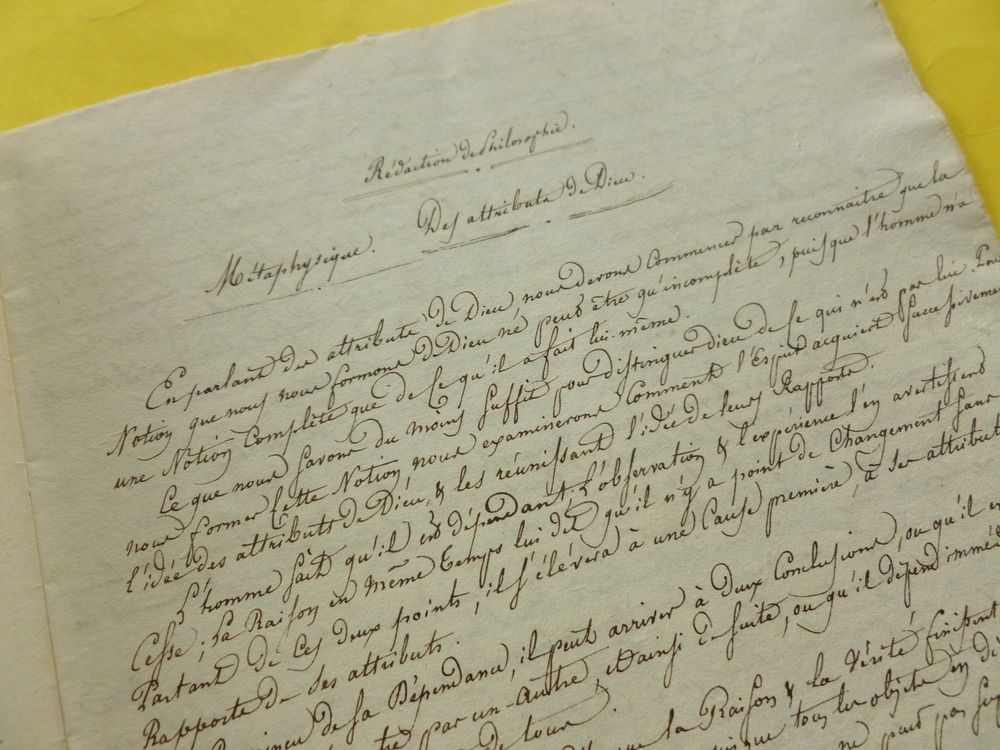 Rédaction de Philosophie.
Métaphysique. Des attributs de Dieu.
En parlant des attributs de Dieu, nous devons commencer par reconnaitre que la
Notion que nous nous formons de Dieu ne peut être qu'incomplète, puisque l'homme n'a
une Notion Complète que de Ce qu'il a fait lui-même.
Ce que nous savons du moins suffit pour distinguer Dieu de Ce qui n'est pas lui. Pour
nous former Cette Notion, nous examinerons Comment l'Esprit acquiert Successivement
l'idée des attributs de Dieu, & les réunissant l'idée de leurs Rapports.
L'homme sait qu'il est dépendant; l'observation & l'expérience l'en avertissent
Cesse; la Raison en même temps lui dit qu'il n'y a point de Changement Sans
Partant de Ces deux points, il s'élévera à une Cause première, à ses attributs
Rapports de ses attributs.
de sa Dépendance, il peut arriver à Deux Conclusions, ou qu'il
par un autre, et ainsi de suite, ou qu'il dépend
de tour.
que la Raison & la Vérité finissent
que tous les objets en
ne peut pas